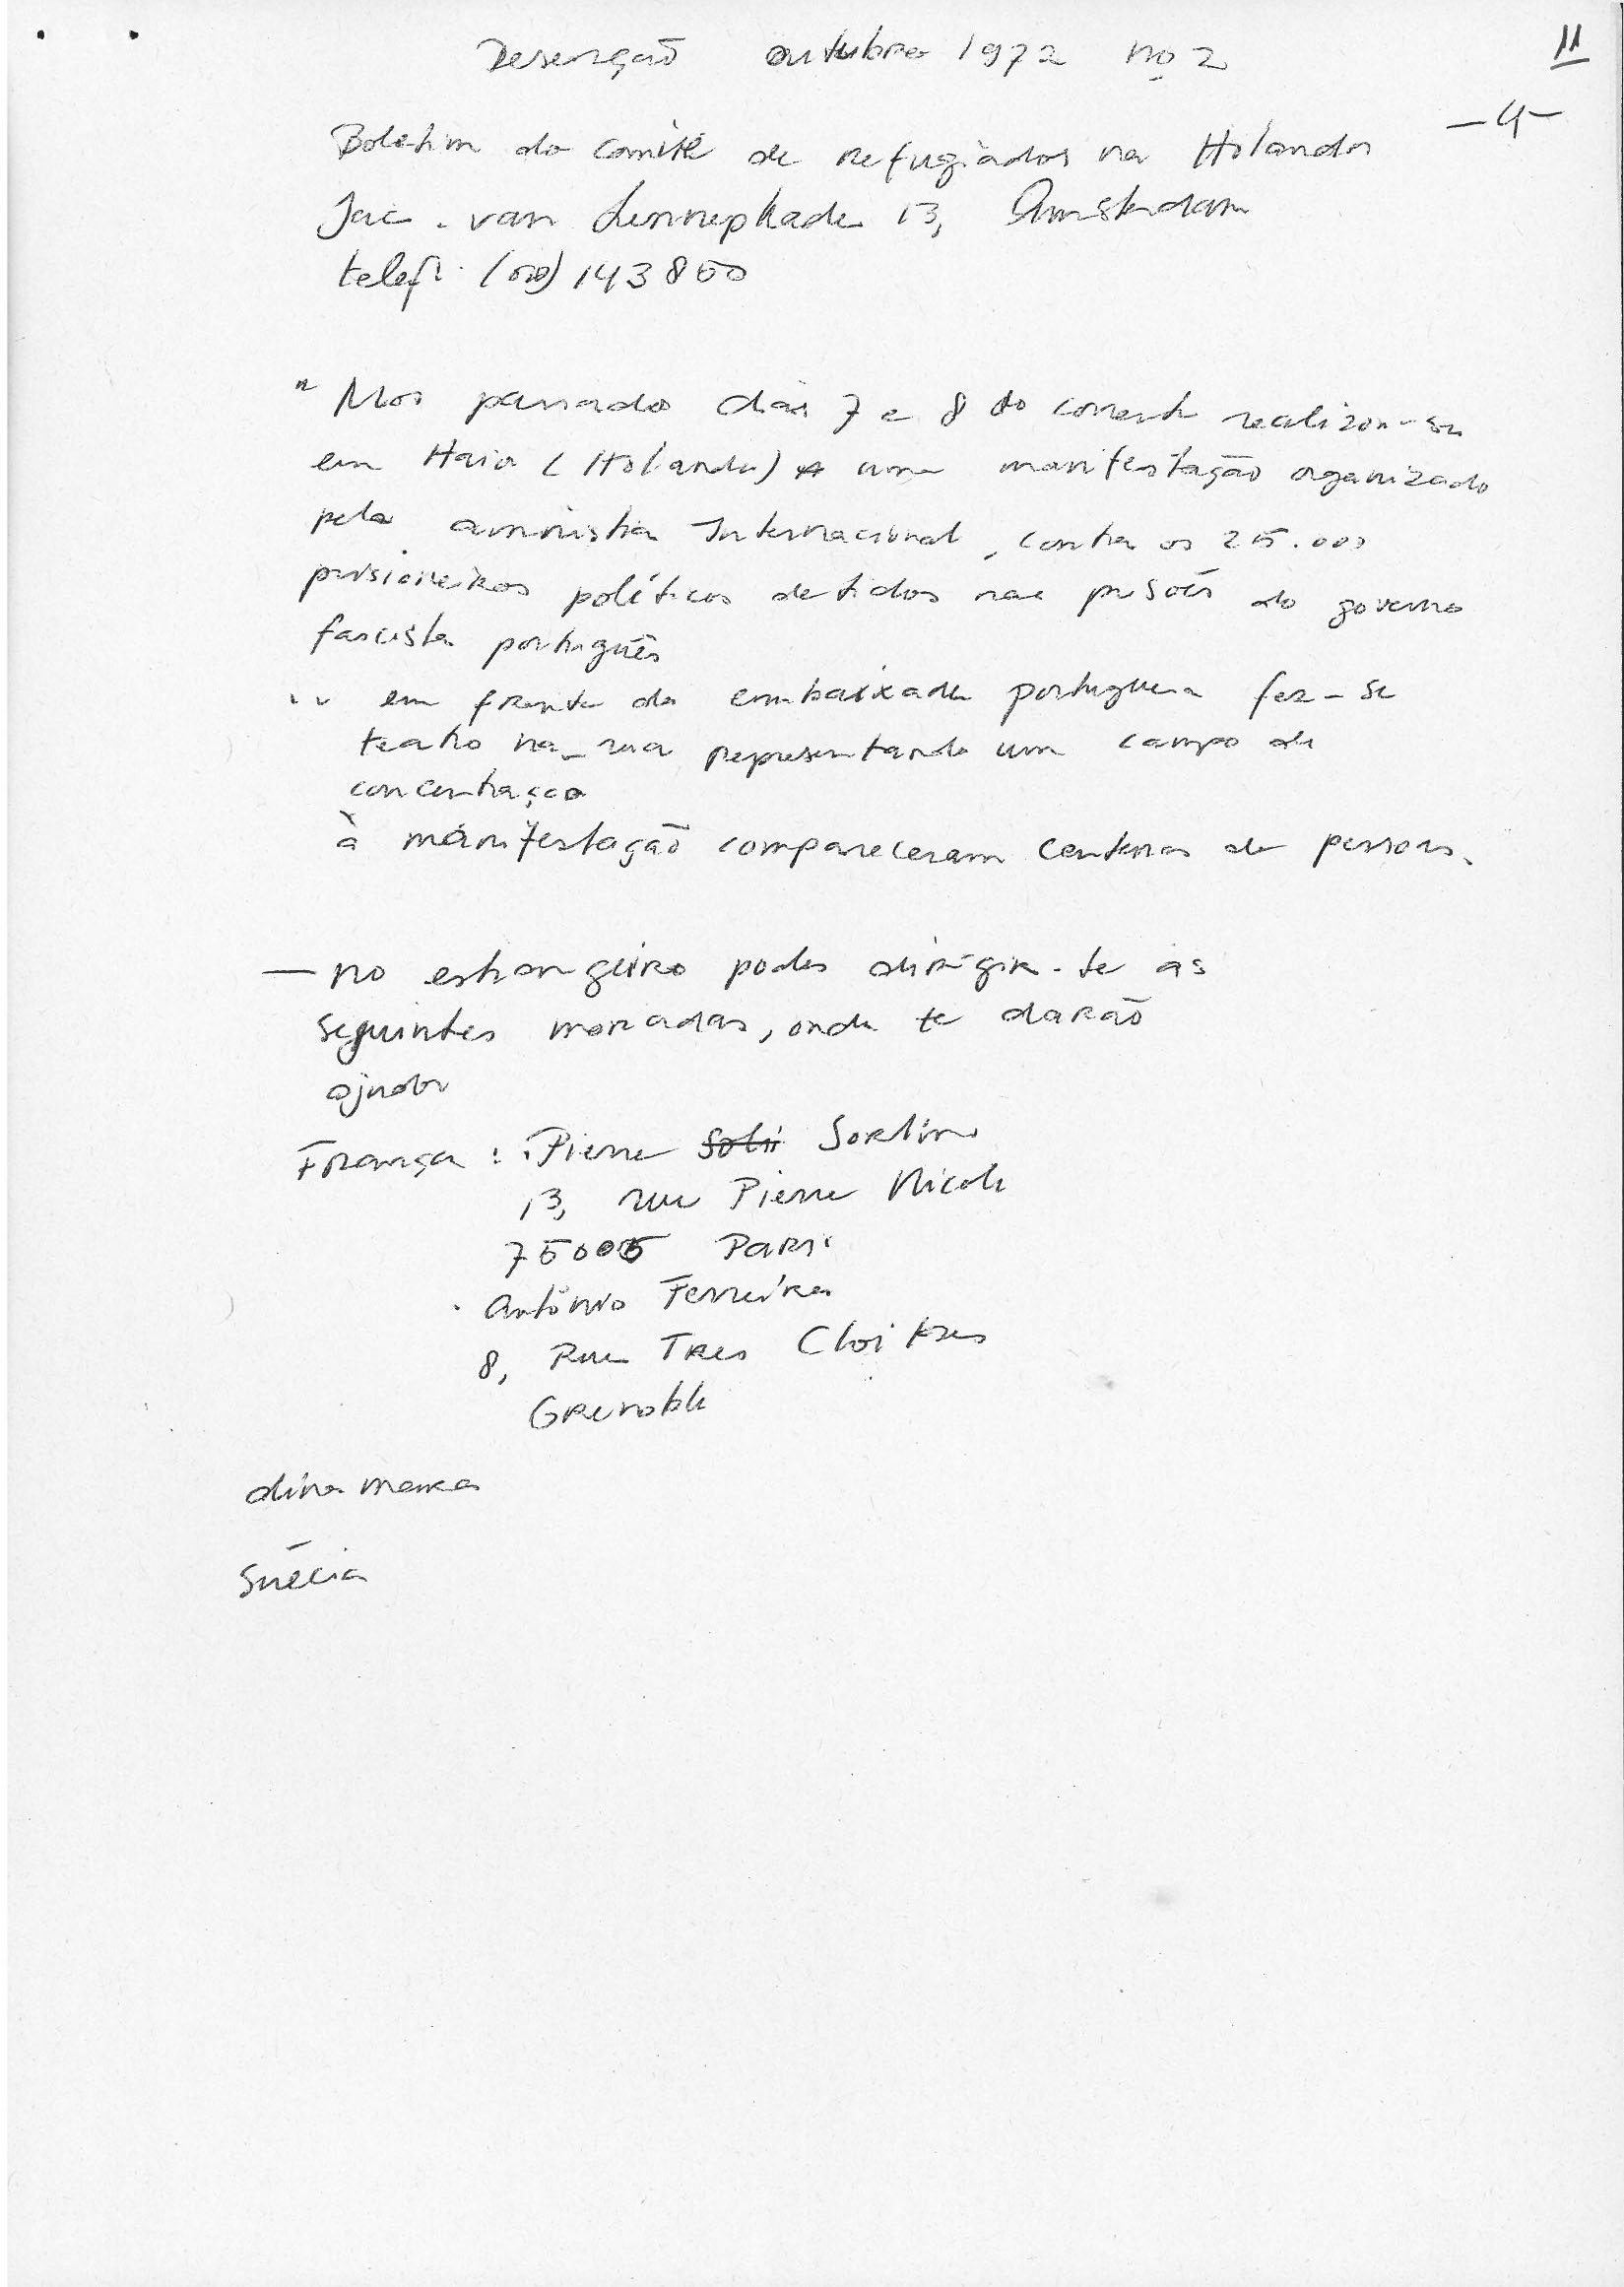 11
Deserção outubro 1972 no 2
-4-
Boletim do comité de refugiados na Holanda
Jac. van Lennepkade 13, Amsterdam
telef. (020) 143860
"Nos passado dias 7 e 8 do corrente realizou-se
em Haia (Holanda) uma manifestação organizado
pela amnistia Internacional, contra os 25.000
prisioneiros políticos detidos nas prisões do governo
fascista português
em frente da embaixada portuguesa fez-se
teatro na rua representando um campo de
concentração
à manifestação compareceram centenas de pessoas.
— no estrangeiro podes dirigir-te às
seguintes moradas, onde te darão
ajuda
França : Pierre Sorlin
13, rue Pierre Nicole
75005 Paris
António Ferreira
8, Rue Tres Cloitres
Grenoble
dinamarca
Suécia